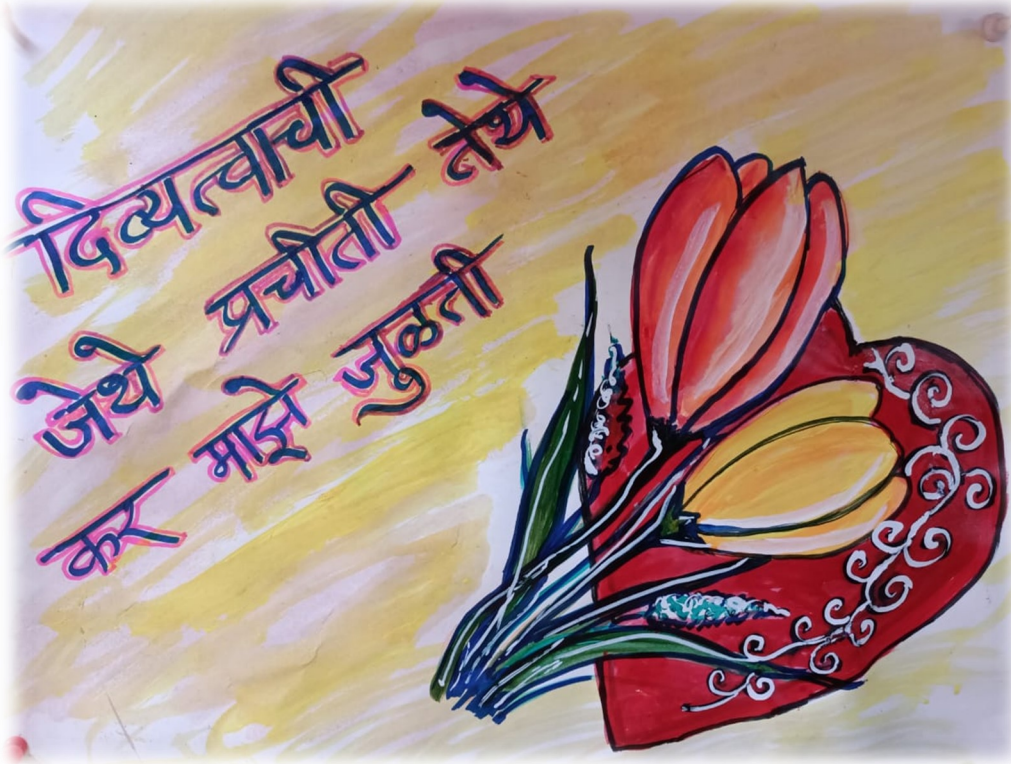 दिव्यत्वाची
जेथे प्रचीती तेथे
कर माझे जुळती